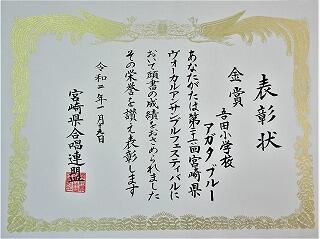 表彰状
金賞
吾田小学校
アガタブルー
あなたがたは第二十一回宮崎県
ヴォーカルアンサンブルフェスティバルに
おいて頭書の成績をおさめられました
その栄誉を讃え表彰します
令和二年一月五日
宮崎県合唱連盟